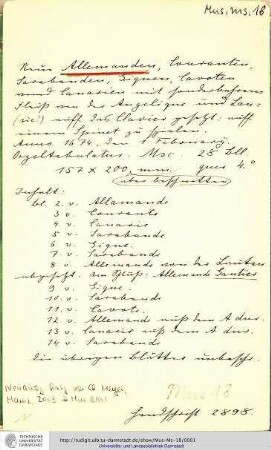 Mus. ms. 18
Neue Allemanden, Couranten,
Sarabanden, Giquen, Gavoten
und Canarien mit sonderbahrem
Fleiß von der Angelique und Lau-
(sic!) auff das Clavier gesetzt: auff
einem Spinet zu spielen.
Anno 1674. den 1 February.
Orgeltabulatur. Msc. 28 Bll.
157 x 200 mm quer 4°
Inhalt:
bl. 2 v. Allemande
3 v. Courante
4 v. Canarie
5 v. Sarabande
6 v. Gigue
7 v. Sarabande
8 v. Allemande von der Lauten
abgesetzt. am Schluß: Allemande Gautier
9 v. Gigue
10 v. Sarabande
11 v. Gavote
12 v. Allemande auß dem A dur.
13 v. Canarie auß dem A dur.
14 v. Sarabande
Die übrigen blätter unbeschr.
Mus 18
Handschrift 2898.
TECHNISCHE
UNIVERSITÄT
DARMSTADT
http://tudigit.ulb.tu-darmstadt.de/show/Mus-Ms-18/0001
Universitäts- und Landesbibliothek Darmstadt